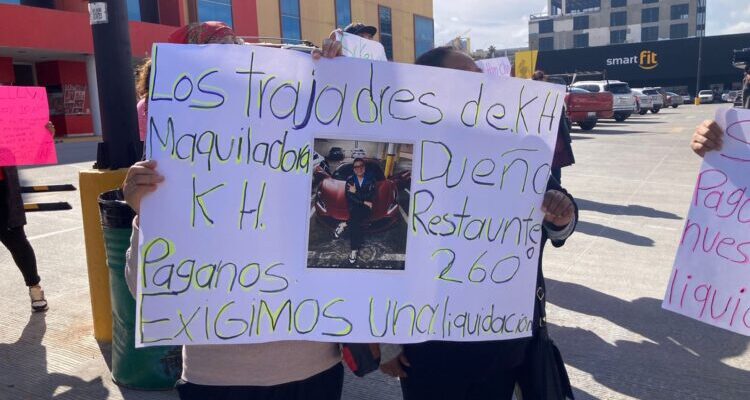 smart fit
Los trajadores de.KH
Maquiladora
K H.
Dueño
Restaunte
260
Paganos.
Exigimos una liquidación
Paga
nues
liquid